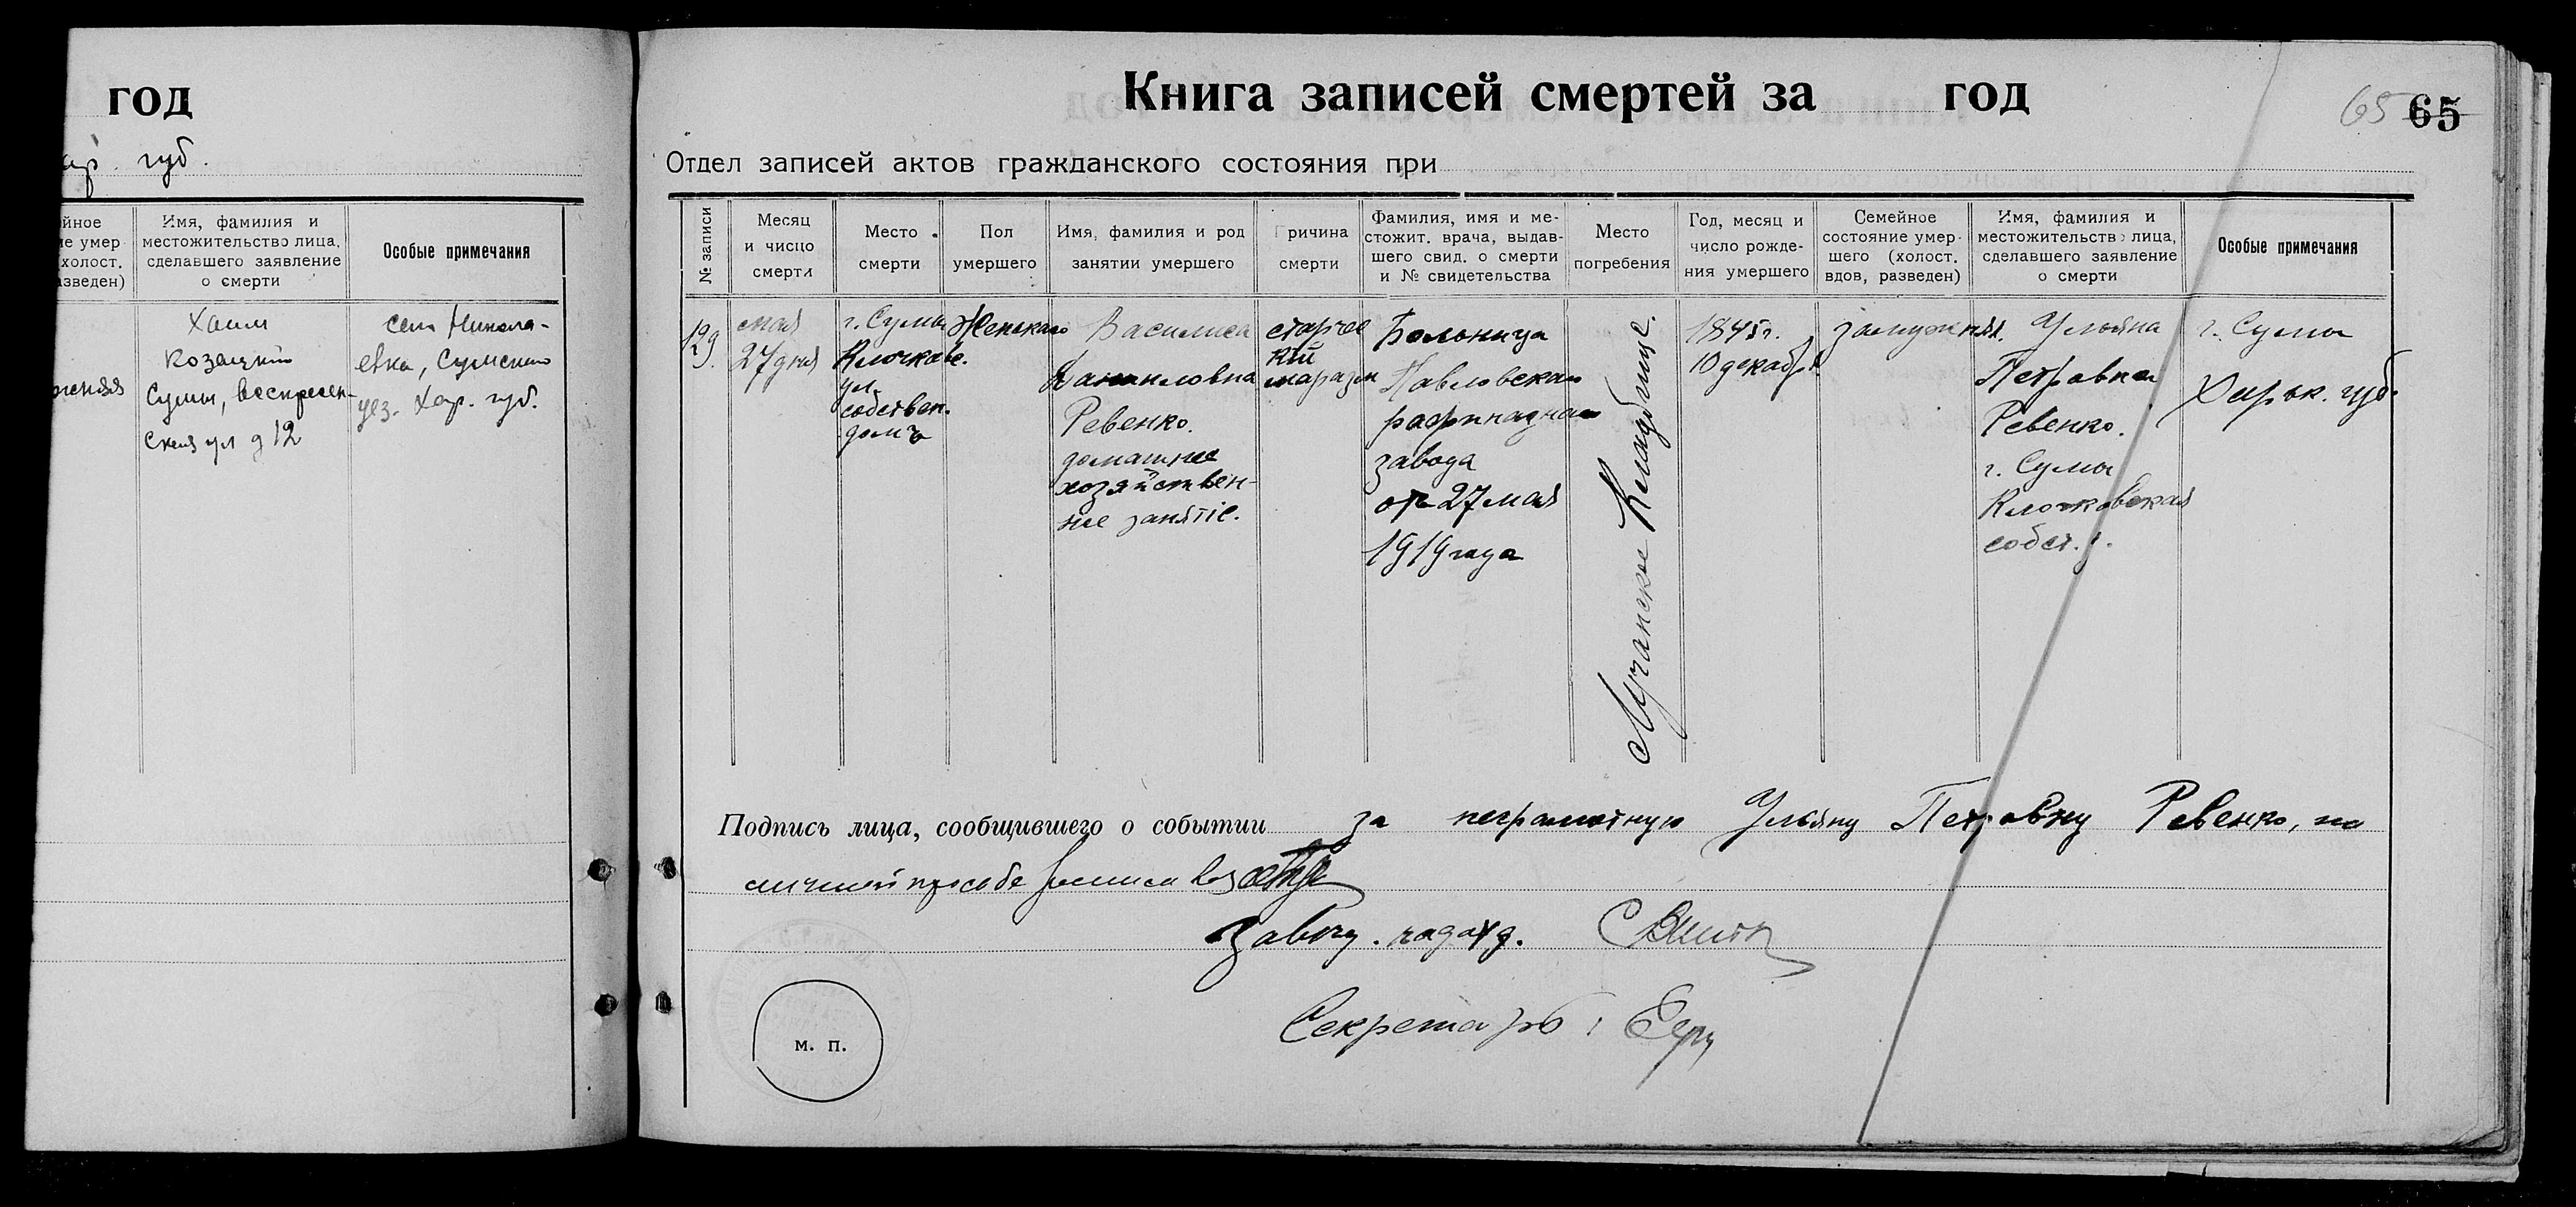 год
губ.
йное
ие умер-
холост.
азведен)
Имя, фамилия и
местожительство лица,
сделавшего заявление
о смерти
Особые примечания
Хаим
Козацкий
Сумы, Воскресен-
ская ул д 12
село Никола-
евка, Сумского
уез. Хар. губ.
Книга записей смертей за год
65 65
Отдел записей актов гражданского состояния при
№ записи
Месяц
и число
смерти
Место
смерти
Пол
умершего
Имя, фамилия и род
занятии умершего
Причина
смерти
Фамилия, имя и ме-
стожит. врача, выдав-
шего свид. о смерти
и № свидетельства
Место
погребения
Год, месяц и
число рожде-
ния умершего
Семейное
состояние умер-
шего (холост.
вдов, разведен)
Имя, фамилия и
местожительство лица,
сделавшего заявление
о смерти
Особые примечания
129.
мая
27 дня
г. Сумы
Клочков.
ул.
собствен.
домъ
Женскаго
Василиса
Даниловна
Ревенко.
домашнее
хозяйствен-
ное занятіе.
старчес
кій
маразм
Больница
Павловскаго
рафинаднаго
завода
от 27 мая
1919 года
Лучанское Кладбище.
1845 г.
10 декабр.
замужняя.
Ульяна
Петровна
Ревенко.
г. Сумы
Клочковская
собст. д.
г. Сумы
Харьк. губ.
Подпись лица, сообщившего о событии за неграмотную Ульяну Петровну Ревенко, по
личной просьбе
Завед. подотд.
Секретарь:
м. п.